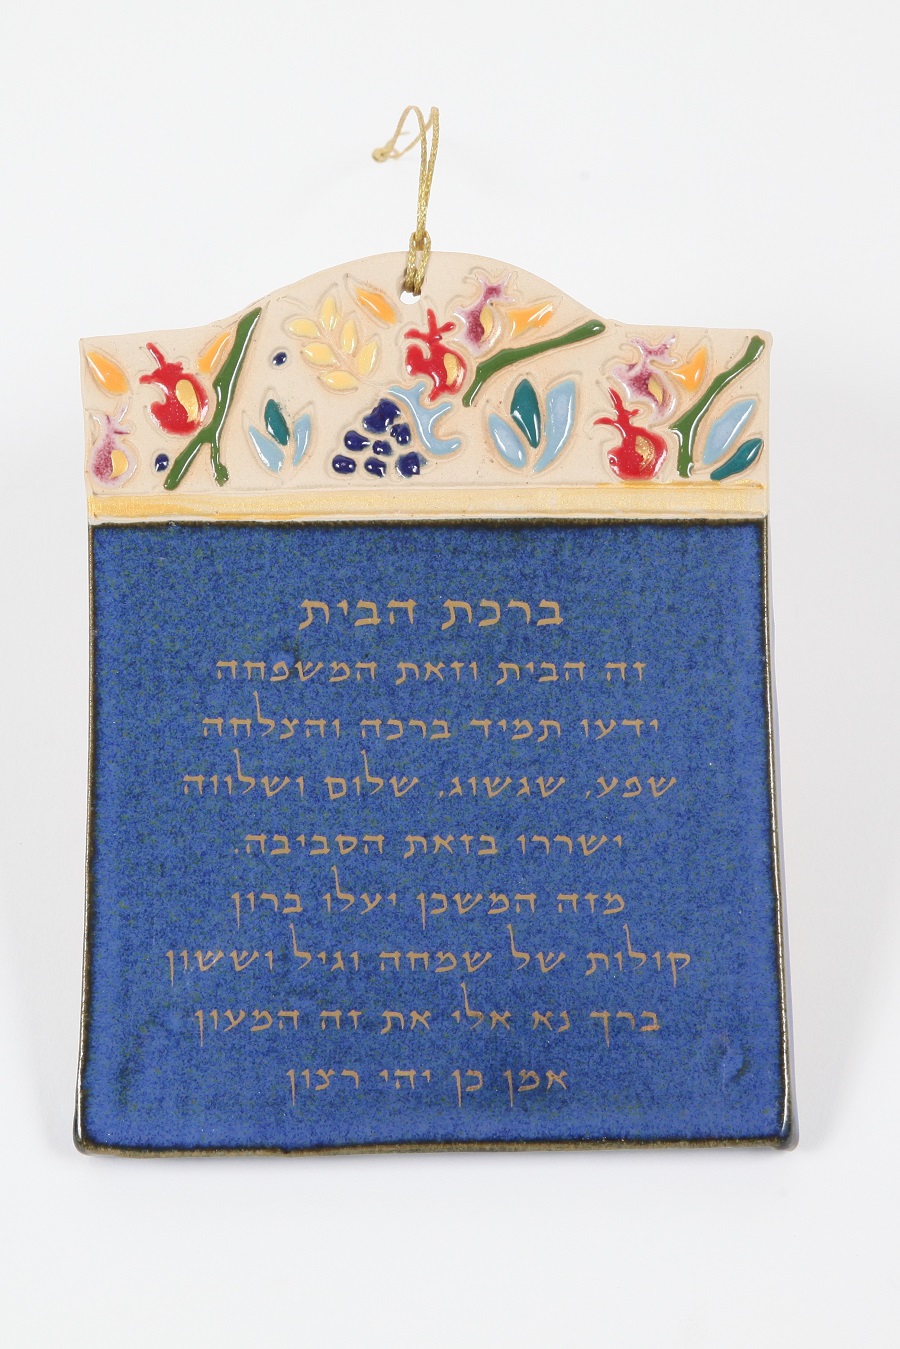 ברכת הבית
זה הבית וזאת המשפחה
ידעו תמיד ברכה והצלחה
שפע, שגשוג, שלום ושלווה
ישררו בזאת הסביבה.
מזה המשכן יעלו ברון
קולות של שמחה וגיל וששון
ברך נא אלי את זה המעון
אמן כן יהי רצון